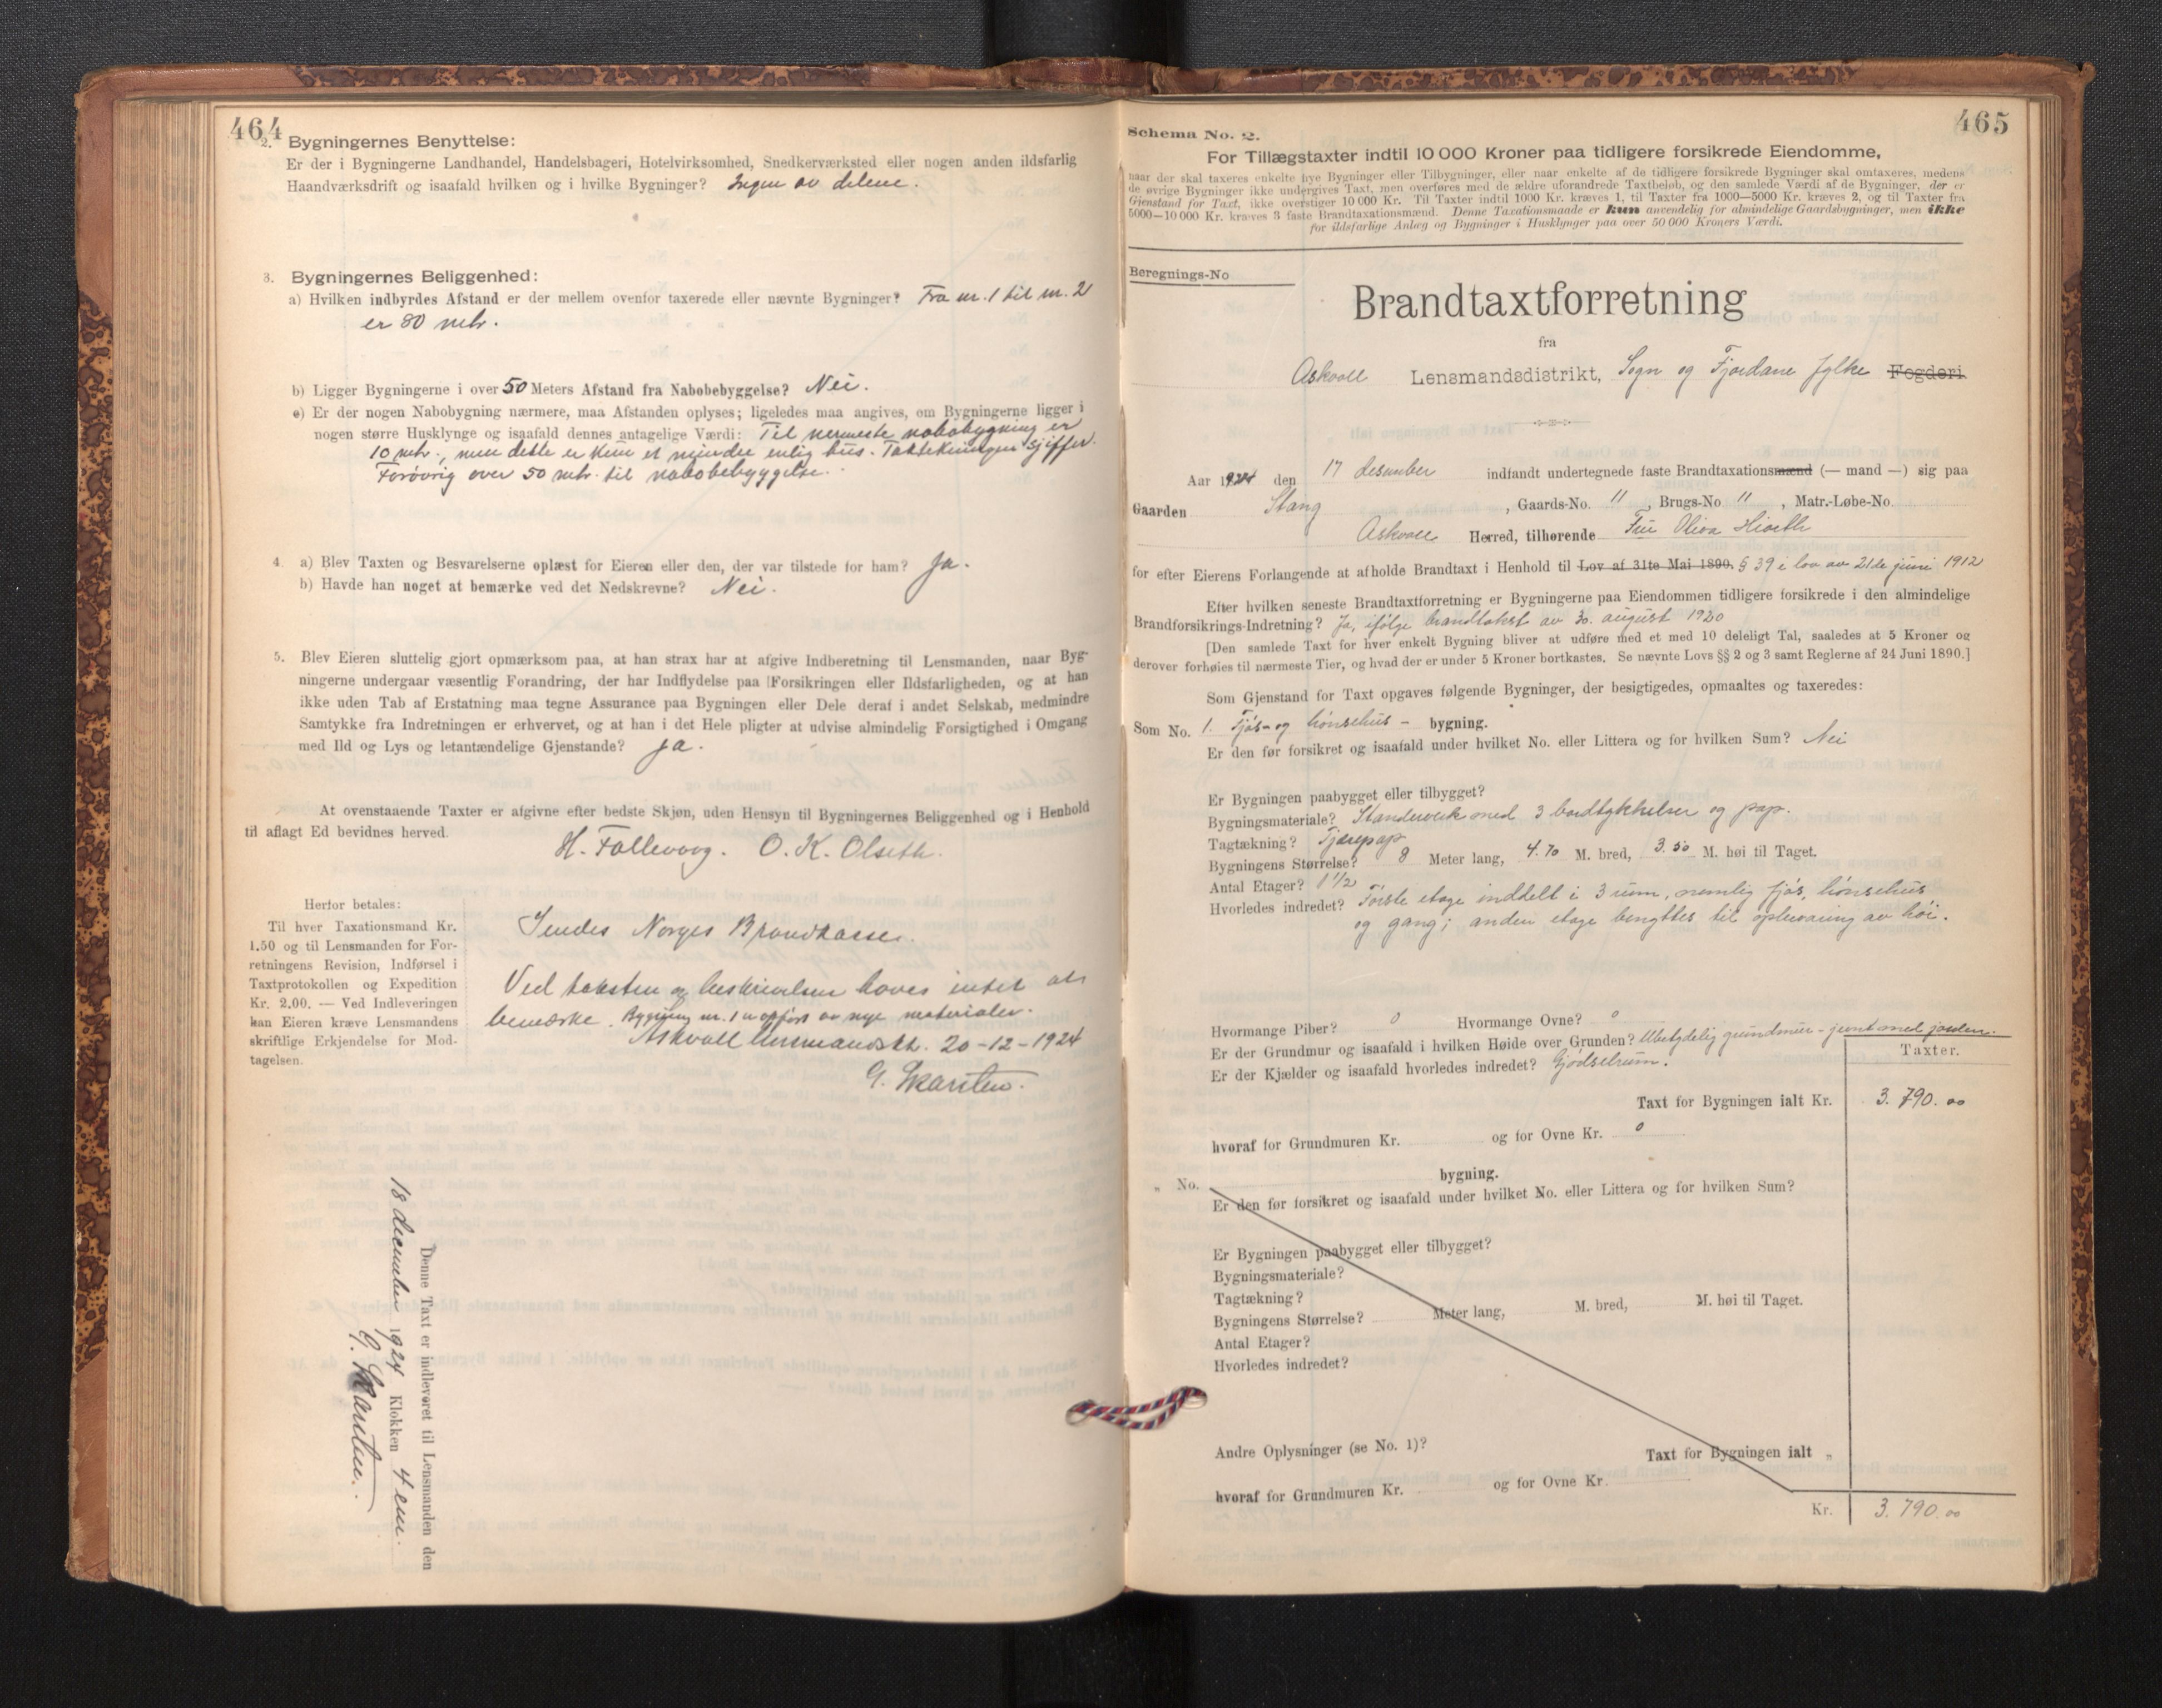 464
2. Bygningernes Benyttelse:
Er der i Bygningerne Landhandel, Handelsbageri, Hotelvirksomhed, Snedkerværksted eller nogen anden ildsfarlig
Haandværksdrift og isaafald hvilken og i hvilke Bygninger? Ingen av delene.
3. Bygningernes Beliggenhed:
a) Hvilken indbyrdes Afstand er der mellem ovenfor taxerede eller nævnte Bygninger? Fra nr. 1 til nr. 2
er 80 mtr.
b) Ligger Bygningerne i over 50 Meters Afstand fra Nabobebyggelse? Nei.
c) Er der nogen Nabobygning nærmere, maa Afstanden oplyses; ligeledes maa angives, om Bygningerne ligger i
nogen større Husklynge og isaafald dennes antagelige Værdi: Til nermeste nabobygning er
10 mtr., men dette er kun et mindre enlig hus. Taktekningen sjiffer.
Forøvrig over 50 mtr. til nabobebyggelse.
4. a) Blev Taxten og Besvarelserne oplæst for Eieren eller den, der var tilstede for ham? Ja.
b) Havde han noget at bemærke ved det Nedskrevne? Nei.
5. Blev Eieren sluttelig gjort opmærksom paa, at han strax har at afgive Indberetning til Lensmanden, naar Byg-
ningerne undergaar væsentlig Forandring, der har Indflydelse paa Forsikringen eller Ildsfarligheden, og at han
ikke uden Tab af Erstatning maa tegne Assurance paa Bygningen eller Dele deraf i andet Selskab, medmindre
Samtykke fra Indretningen er erhvervet, og at han i det Hele pligter at udvise almindelig Forsigtighed i Omgang
med Ild og Lys og letantændelige Gjenstande? Ja.
At ovenstaaende Taxter er afgivne efter bedste Skjøn, uden Hensyn til Bygningernes Beliggenhed og i Henhold
til aflagt Ed bevidnes herved.
H. Follevaag. O. K. Olseth.
Herfor betales:
Til hver Taxationsmand Kr.
1.50 og til Lensmanden for For-
retningens Revision, Indførsel i
Taxtprotokollen og Expedition
Kr. 2.00. — Ved Indleveringen
kan Eieren kræve Lensmandens
skriftlige Erkjendelse for Mod-
tagelsen.
Sendes Norges Brandkasse.
Ved taksten og beskrivelsen haves intet at
bemærke. Bygning nr. 1 er opført av nye materialer.
Askvoll lensmandsk. 20-12-1924
G. Skarsten.
Denne Taxt er indleveret til Lensmanden den
18 december 1924 Klokken 4 em.
G. Skarsten.
465
Schema No. 2.
For Tillægstaxter indtil 10 000 Kroner paa tidligere forsikrede Eiendomme,
naar der skal taxeres enkelte nye Bygninger eller Tilbygninger, eller naar enkelte af de tidligere forsikrede Bygninger skal omtaxeres, medens
de øvrige Bygninger ikke undergives Taxt, men overføres med de ældre uforandrede Taxtbeløb, og den samlede Værdi af de Bygninger, der er
Gjenstand for Taxt, ikke overstiger 10 000 Kr. Til Taxter indtil 1000 Kr. kræves 1, til Taxter fra 1000—5000 Kr. kræves 2, og til Taxter fra
5000—10 000 Kr. kræves 3 faste Brandtaxationsmænd. Denne Taxationsmaade er kun anvendelig for almindelige Gaardsbygninger, men ikke
for ildsfarlige Anlæg og Bygninger i Husklynger paa over 50 000 Kroners Værdi.
Beregnings-No
Brandtaxtforretning
fra
Askvoll Lensmandsdistrikt, Sogn og Fjordane fylke Fogderi
Aar 1924 den 17 desember indfandt undertegnede faste Brandtaxationsmænd (— mand —) sig paa
Gaarden Stang, Gaards-No. " Brugs-No " , Matr.-Løbe-No.
Askvoll Herred, tilhørende Fru Oliva Hioeth
for efter Eierens Forlangende at afholde Brandtaxt i Henhold til Lov af 31te Mai 1890. § 39 i lov av 21de juni 1912
Efter hvilken seneste Brandtaxtforretning er Bygningerne paa Eiendommen tidligere forsikrede i den almindelige
Brandforsikrings-Indretning? Ja, ifølge brandtakst av 30. august 1920
[Den samlede Taxt for hver enkelt Bygning bliver at udføre med et med 10 deleligt Tal, saaledes at 5 Kroner og
derover forhøies til nærmeste Tier, og hvad der er under 5 Kroner bortkastes. Se nævnte Lovs §§ 2 og 3 samt Reglerne af 24 Juni 1890.]
Som Gjenstand for Taxt opgaves følgende Bygninger, der besigtigedes, opmaaltes og taxeredes:
Som No. 1. Fjøs- og hønsehus - bygning.
Er den før forsikret og isaafald under hvilket No. eller Littera og for hvilken Sum? Nei
Er Bygningen paabygget eller tilbygget?
Bygningsmateriale? Standerverk med 3 bordtykkelser og pap.
Tagtækning? Tjærepap
Bygningens Størrelse? 8 Meter lang, 4.70 M. bred, 3.50 M. høi til Taget.
Antal Etager? 1 1/2
Hvorledes indredet? Første etage inddelt i 3 rum, nemlig fjøs, hønsehus
og gang; anden etage benyttes til oplevaring av høi.
Hvormange Piber? 0 Hvormange Ovne? 0
Er der Grundmur og isaafald i hvilken Høide over Grunden? Ubetydelig grundmur - jevnt med jorden.
Er der Kjælder og isaafald hvorledes indredet? Gjødselrum.
Taxter.
Taxt for Bygningen ialt Kr. 3.790.00
hvoraf for Grundmuren Kr. og for Ovne Kr. 0
" No. bygning.
Er den før forsikret og isaafald under hvilket No. eller Littera og for hvilken Sum?
Er Bygningen paabygget eller tilbygget?
Bygningsmateriale?
Tagtækning?
Bygningens Størrelse? Meter lang, M. bred, M. høi til Taget.
Antal Etager?
Hvorledes indredet?
Andre Oplysninger (se No. 1)? Taxt for Bygningen ialt "
hvoraf for Grundmuren Kr. og for Ovne Kr.
Kr. 3.790.00